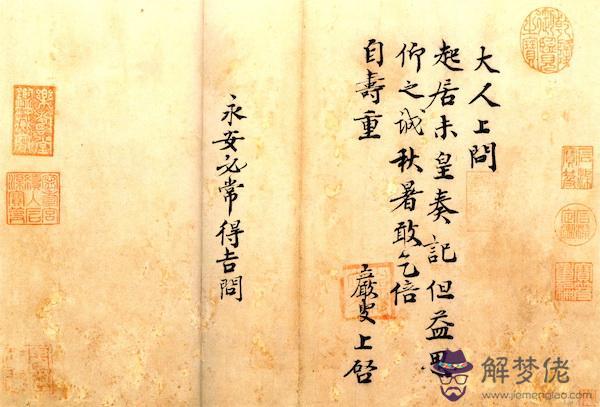 大人上問
起居未皇奏記但益思
仰之誠秋暑敢乞倍
自壽重
嚴叟上啓
永安必常得吉問
解梦佬
www.jiemenglao.com